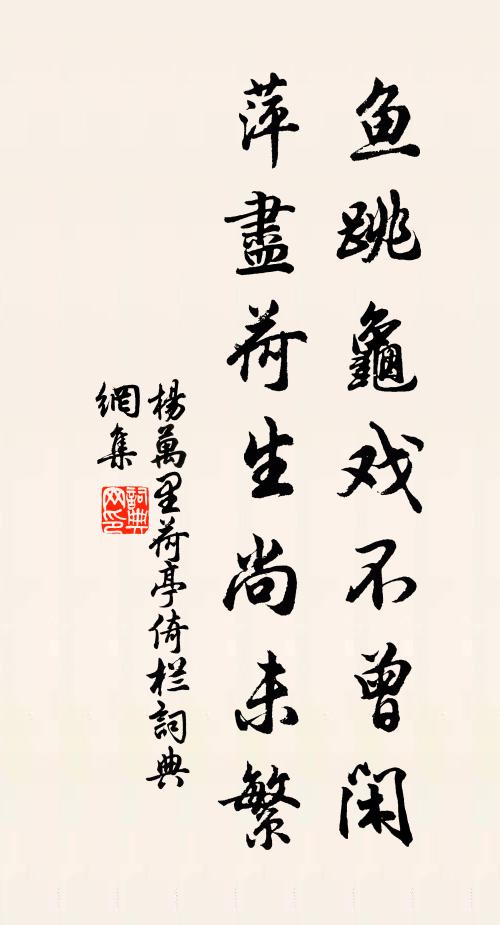 鱼跳龜戏不曾閑
萍盡荷生尚未繁
楊萬里荷亭倚栏詞典
網集
詞典
网印